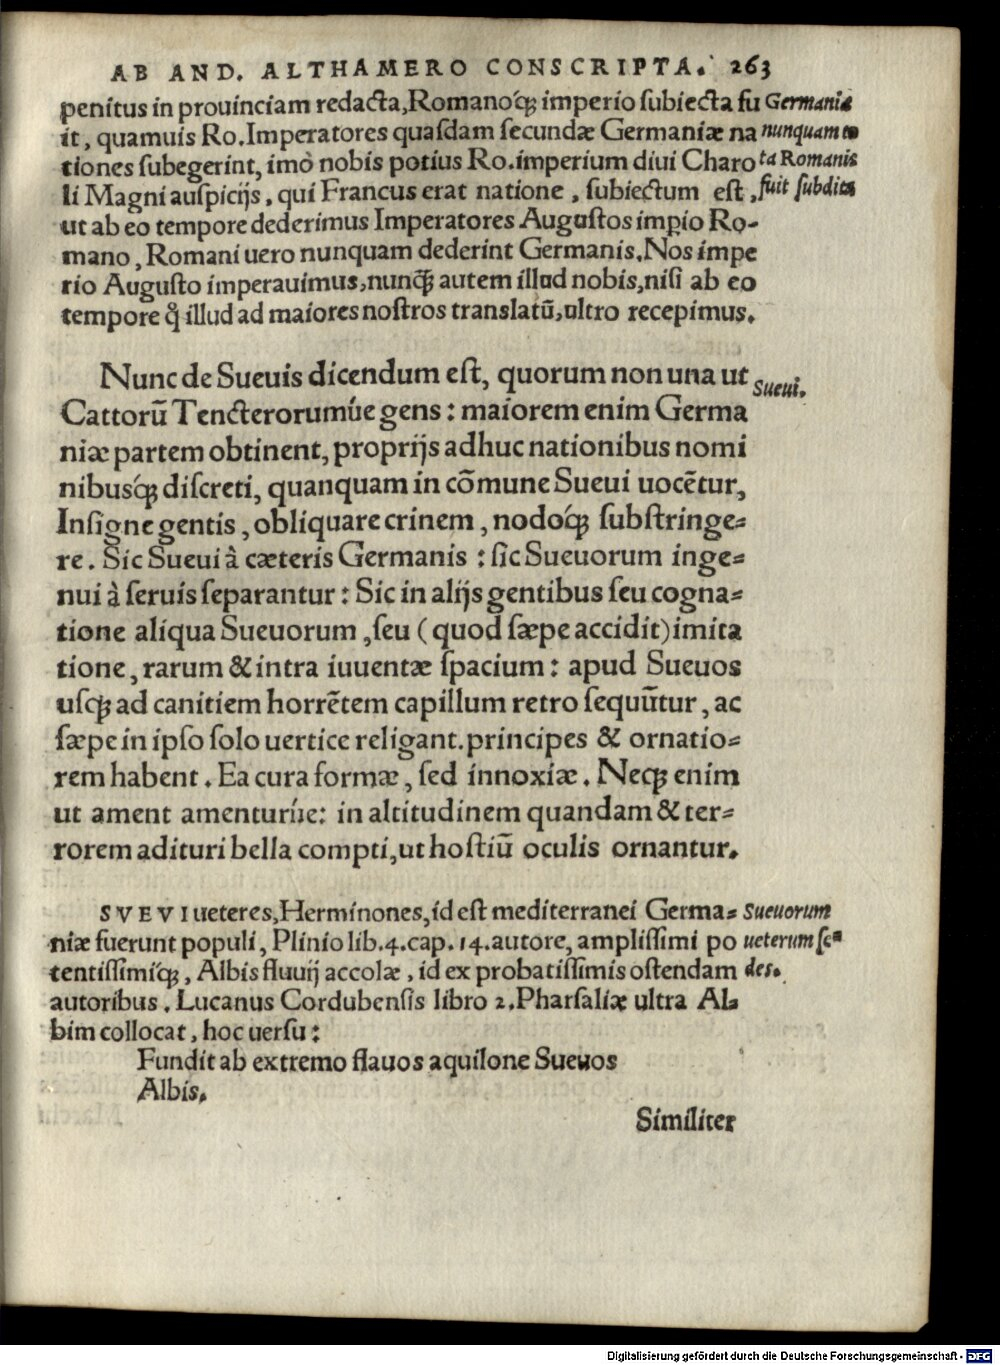 AB AND. ALTHAMERO CONSCRIPTA. 263
penitus in prouinciam redacta, Romanoq́ꝫ imperio subiecta fu
it, quamuis Ro. Imperatores quasdam secundæ Germaniæ na
tiones subegerint, imò nobis potius Ro. imperium diui Charo
li Magni auspicijs, qui Francus erat natione, subiectum est,
ut ab eo tempore dederimus Imperatores Augustos imꝑio Ro-
mano, Romani uero nunquam dederint Germanis. Nos impe
rio Augusto imperauimus, nunq̃ꝫ autem illud nobis, nisi ab eo
tempore q̊ illud ad maiores nostros translatũ, ultro recepimus.
Germania
nunquam to
ta Romanis
fuit subdita
Nunc de Sueuis dicendum est, quorum non una ut
Cattorũ Tencterorumúe gens: maiorem enim Germa
niæ partem obtinent, proprijs adhuc nationibus nomi
nibusq́ꝫ discreti, quanquam in cõmune Sueui uocẽtur,
Insigne gentis, obliquare crinem, nodoq́ꝫ substringe=
re. Sic Sueui à cæteris Germanis: sic Sueuorum inge=
nui à seruis separantur: Sic in alijs gentibus seu cogna=
tione aliqua Sueuorum, seu (quod sæpe accidit) imita
tione, rarum & intra iuuentæ spacium: apud Sueuos
usqꝫ ad canitiem horrẽtem capillum retro sequũtur, ac
sæpe in ipso solo uertice religant. principes & ornatio=
rem habent. Ea cura formæ, sed innoxiæ. Neqꝫ enim
ut ament amenturúe: in altitudinem quandam & ter=
rorem adituri bella compti, ut hostiũ oculis ornantur.
Sueui.
SVEVI ueteres, Herminones, id est mediterranei Germa=
niæ fuerunt populi, Plinio lib. 4. cap. 14. autore, amplissimi po
tentissimiq́ꝫ, Albis fluuij accolæ, id ex probatissimis ostendam
autoribus. Lucanus Cordubensis libro 2. Pharsaliæ ultra Al=
bim collocat, hoc uersu:
Sueuorum
ueterum se=
des.
Fundit ab extremo flauos aquilone Sueuos
Albis.
Similiter
Digitalisierung gefördert durch die Deutsche Forschungsgemeinschaft - DFG